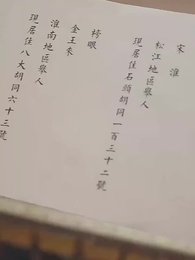 宋淮
松江地區舉人
現居住石頭胡同一百三十二號
榜眼
金玉朱
淮南地區舉人
現居住八大胡同六十三號